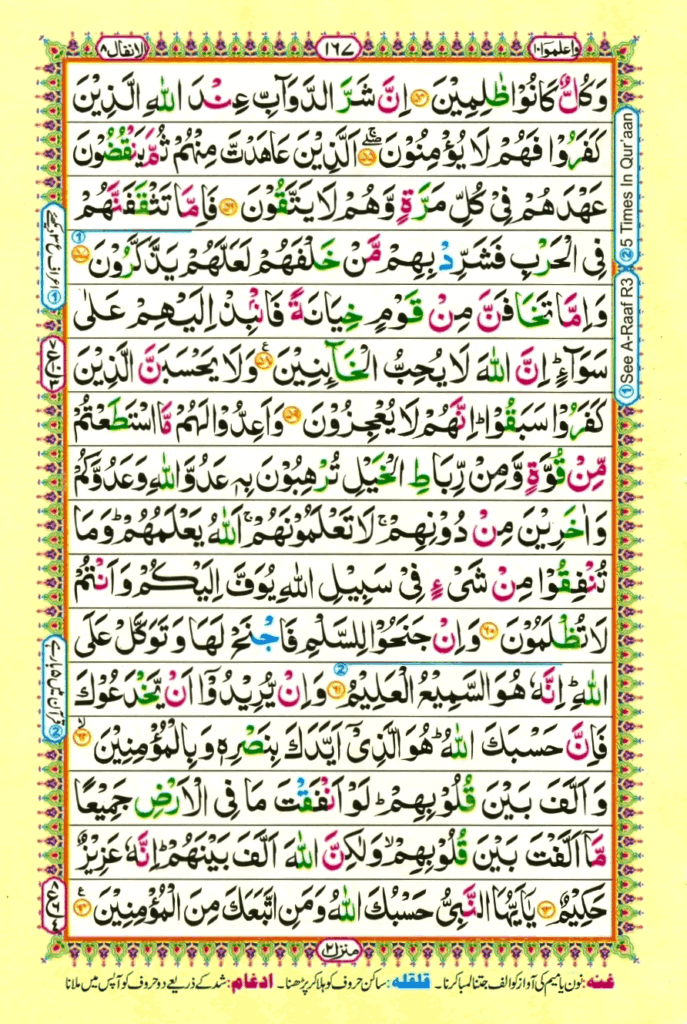 واعلموا ١٠
١٦٧
الانفال ٨
وَكُلٌّ كَانُوْا ظٰلِمِيْنَ ﴿۵۴﴾ اِنَّ شَرَّ الدَّوَآبِّ عِنْدَ اللّٰهِ الَّذِيْنَ
كَفَرُوْا فَهُمْ لَا يُؤْمِنُوْنَ ﴿۵۵﴾ اَلَّذِيْنَ عَاهَدْتَّ مِنْهُمْ ثُمَّ يَنْقُضُوْنَ
عَهْدَهُمْ فِيْ كُلِّ مَرَّةٍ وَّهُمْ لَا يَتَّقُوْنَ ﴿۵۶﴾ فَاِمَّا تَثْقَفَنَّهُمْ
فِي الْحَرْبِ فَشَرِّدْ بِهِمْ مَّنْ خَلْفَهُمْ لَعَلَّهُمْ يَذَّكَّرُوْنَ ﴿۵۷﴾
وَاِمَّا تَخَافَنَّ مِنْ قَوْمٍ خِيَانَةً فَانْۢبِذْ اِلَيْهِمْ عَلٰى
سَوَآءٍ ؕ اِنَّ اللّٰهَ لَا يُحِبُّ الْخَآئِنِيْنَ ﴿۵۸﴾ وَلَا يَحْسَبَنَّ الَّذِيْنَ
كَفَرُوْا سَبَقُوْا ؕ اِنَّهُمْ لَا يُعْجِزُوْنَ ﴿۵۹﴾ وَاَعِدُّوْا لَهُمْ مَّا اسْتَطَعْتُمْ
مِّنْ قُوَّةٍ وَّمِنْ رِّبَاطِ الْخَيْلِ تُرْهِبُوْنَ بِهٖ عَدُوَّ اللّٰهِ وَعَدُوَّكُمْ
وَاٰخَرِيْنَ مِنْ دُوْنِهِمْ ۚ لَا تَعْلَمُوْنَهُمْ ۚ اَللّٰهُ يَعْلَمُهُمْ ؕ وَمَا
تُنْفِقُوْا مِنْ شَيْءٍ فِيْ سَبِيْلِ اللّٰهِ يُوَفَّ اِلَيْكُمْ وَاَنْتُمْ
لَا تُظْلَمُوْنَ ﴿۶۰﴾ وَاِنْ جَنَحُوْا لِلسَّلْمِ فَاجْنَحْ لَهَا وَتَوَكَّلْ عَلَى
اللّٰهِ ؕ اِنَّهٗ هُوَ السَّمِيْعُ الْعَلِيْمُ ﴿۶۱﴾ وَاِنْ يُّرِيْدُوْٓا اَنْ يَّخْدَعُوْكَ
فَاِنَّ حَسْبَكَ اللّٰهُ ؕ هُوَ الَّذِيْٓ اَيَّدَكَ بِنَصْرِهٖ وَبِالْمُؤْمِنِيْنَ ﴿۶۲﴾
وَاَلَّفَ بَيْنَ قُلُوْبِهِمْ ؕ لَوْ اَنْفَقْتَ مَا فِي الْاَرْضِ جَمِيْعًا
مَّآ اَلَّفْتَ بَيْنَ قُلُوْبِهِمْ ۙ وَلٰكِنَّ اللّٰهَ اَلَّفَ بَيْنَهُمْ ؕ اِنَّهٗ عَزِيْزٌ
حَكِيْمٌ ﴿۶۳﴾ يٰٓاَيُّهَا النَّبِيُّ حَسْبُكَ اللّٰهُ وَمَنِ اتَّبَعَكَ مِنَ الْمُؤْمِنِيْنَ ﴿۶۴﴾
② 5 Times In Qur'aan
① See A-Raaf R3
② قرآن میں ۵ بار ہے
منزل ٢
غنه: نون یا میم کی آواز کو الف جتنا لمبا کرنا۔ قلقله: ساکن حروف کو ہلا کر پڑھنا۔ ادغام: شد کے ذریعے دو حروف کو آپس میں ملانا